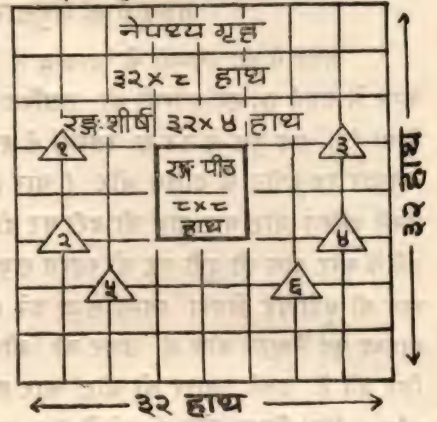 नेपथ्य गृह
३२ × ८ हाथ
रङ्ग शीर्ष ३२ × ४ हाथ
१
३
रङ्ग पीठ
८ × ८
हाथ
२
४
५
६
३२ हाथ
३२ हाथ